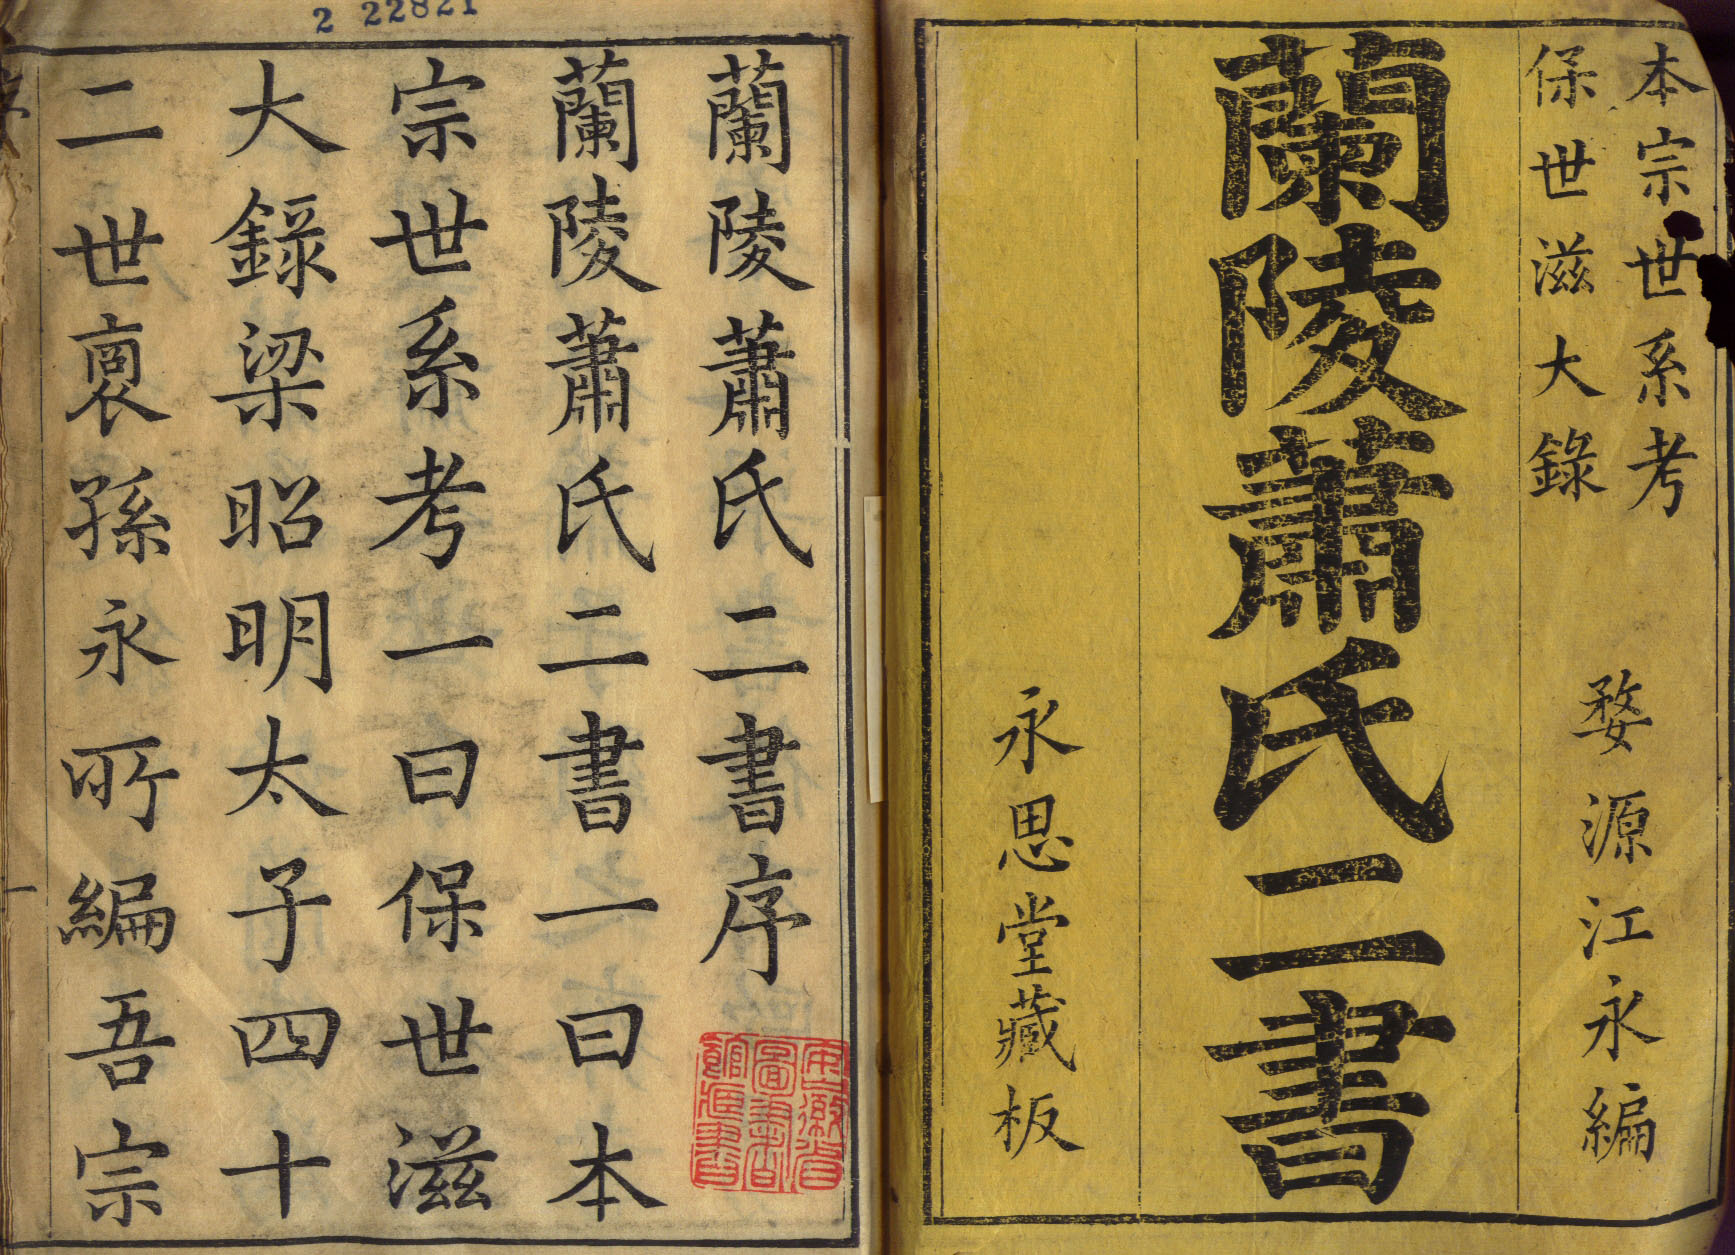 本宗世系考
保世滋大錄
婺源江永編
蘭陵蕭氏二書
永思堂藏板
2 22821
蘭陵蕭氏二書序
蘭陵蕭氏二書一曰本
宗世系考一曰保世滋
大錄梁昭明太子四十
二世裔孫永所編吾宗
安徽省
圖書
館藏書
一